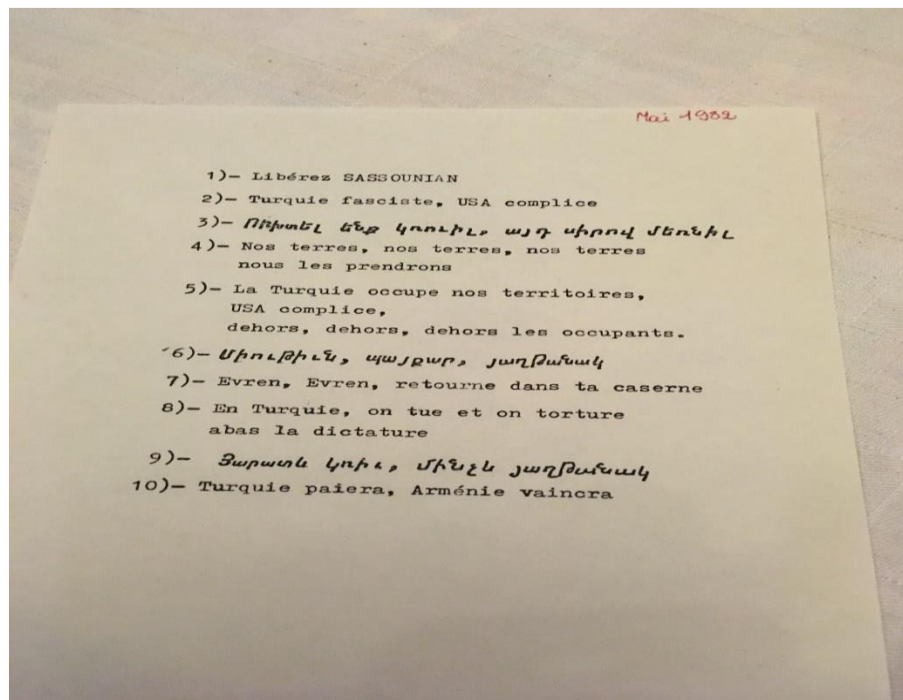 Mai 1982
1)- Libérez SASSOUNIAN
2)- Turquie fasciste, USA complice
3)- Ուխտել ենք կռուիլ, այդ սիրով մեռնիլ
4)- Nos terres, nos terres, nos terres
nous les prendrons
5)- La Turquie occupe nos territoires,
USA complice,
dehors, dehors, dehors les occupants.
6)- Միութիւն, պայքար, յաղթանակ
7)- Evren, Evren, retourne dans ta caserne
8)- En Turquie, on tue et on torture
abas la dictature
9)- Յարատև կռիւ, մինչև յաղթանակ
10)- Turquie paiera, Arménie vaincra